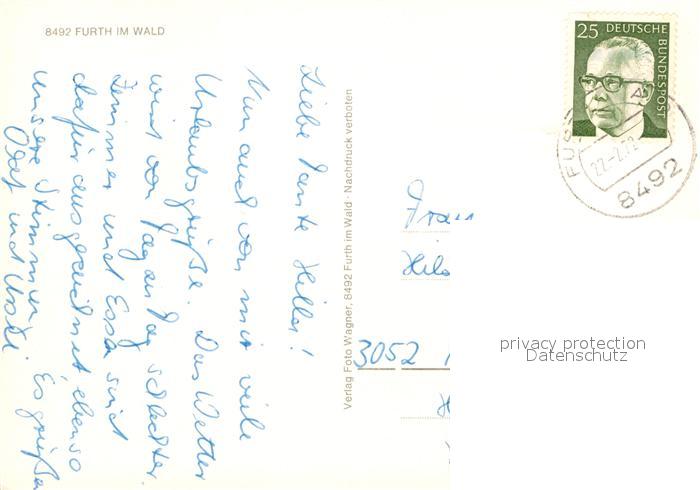 8492 FURTH IM WALD
Liebe Tante Hilla!
Nun auch von mir viele
Urlaubsgrüße. Das Wetter
wird von Tag zu Tag schlechter.
Zimmer und Essen sind
dafür ausgezeichnet, ebenso
unsere Stimmung. Es grüßen
Olaf und Uschi.
Verlag Foto Wagner, 8492 Furth im Wald · Nachdruck verboten
25 DEUTSCHE BUNDESPOST
8492
Frau
Hil
3052
privacy protection
Datenschutz